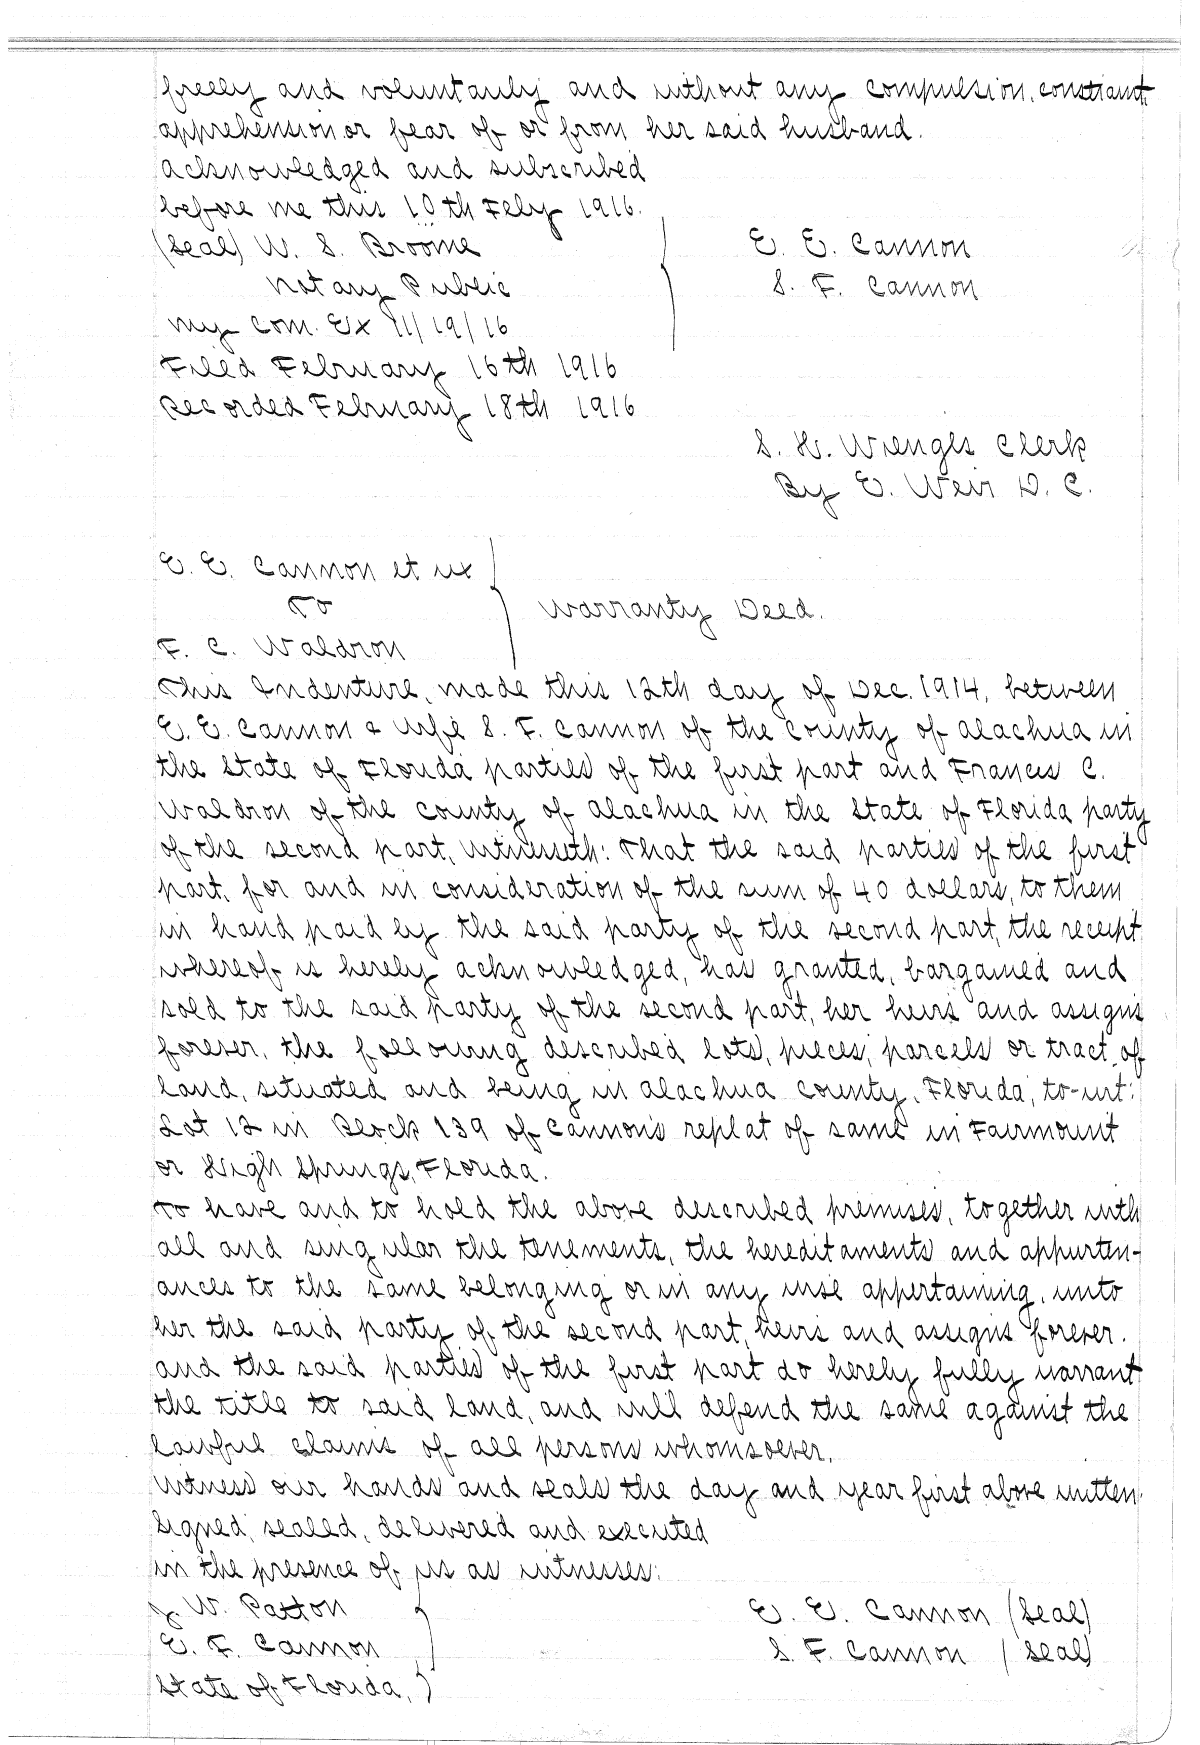 freely and voluntarily and without any compulsion, constraint,
apprehension or fear of or from her said husband.
Acknowledged and subscribed
before me this 10th Feby 1916.
(Seal) W. S. Broome
Notary Public
My Com. Ex 11/19/16
E. E. Cannon
S. F. Cannon
Filed February 16th 1916
Recorded February 18th 1916
S. H. Wienges Clerk
By E. Weir D. C.
E. E. Cannon et ux
To
F. C. Waldron
Warranty Deed.
This Indenture, made this 12th day of Dec. 1914, between
E. E. Cannon & wife S. F. Cannon of the County of Alachua in
the State of Florida parties of the first part and Francis C.
Waldron of the County of Alachua in the State of Florida party
of the second part, witnesseth: That the said parties of the first
part, for and in consideration of the sum of 40 dollars, to them
in hand paid by the said party of the second part, the receipt
whereof is hereby acknowledged, has granted, bargained and
sold to the said party of the second part, her heirs and assigns
forever, the following described lots, pieces, parcels or tract of
land, situated and being in Alachua County, Florida, to-wit:
Lot 12 in Block 139 of Cannon's replat of same in Fairmount
or High Springs, Florida.
To have and to hold the above described premises, together with
all and singular the tenements, the hereditaments and appurten-
ances to the same belonging or in any wise appertaining, unto
her the said party of the second part, heirs and assigns forever.
And the said parties of the first part do hereby fully warrant
the title to said land, and will defend the same against the
lawful claims of all persons whomsoever.
Witness our hands and seals the day and year first above written.
Signed, sealed, delivered and executed
in the presence of us as witnesses:
J. W. Patton
E. F. Cannon
E. E. Cannon (Seal)
S. F. Cannon (Seal)
State of Florida,